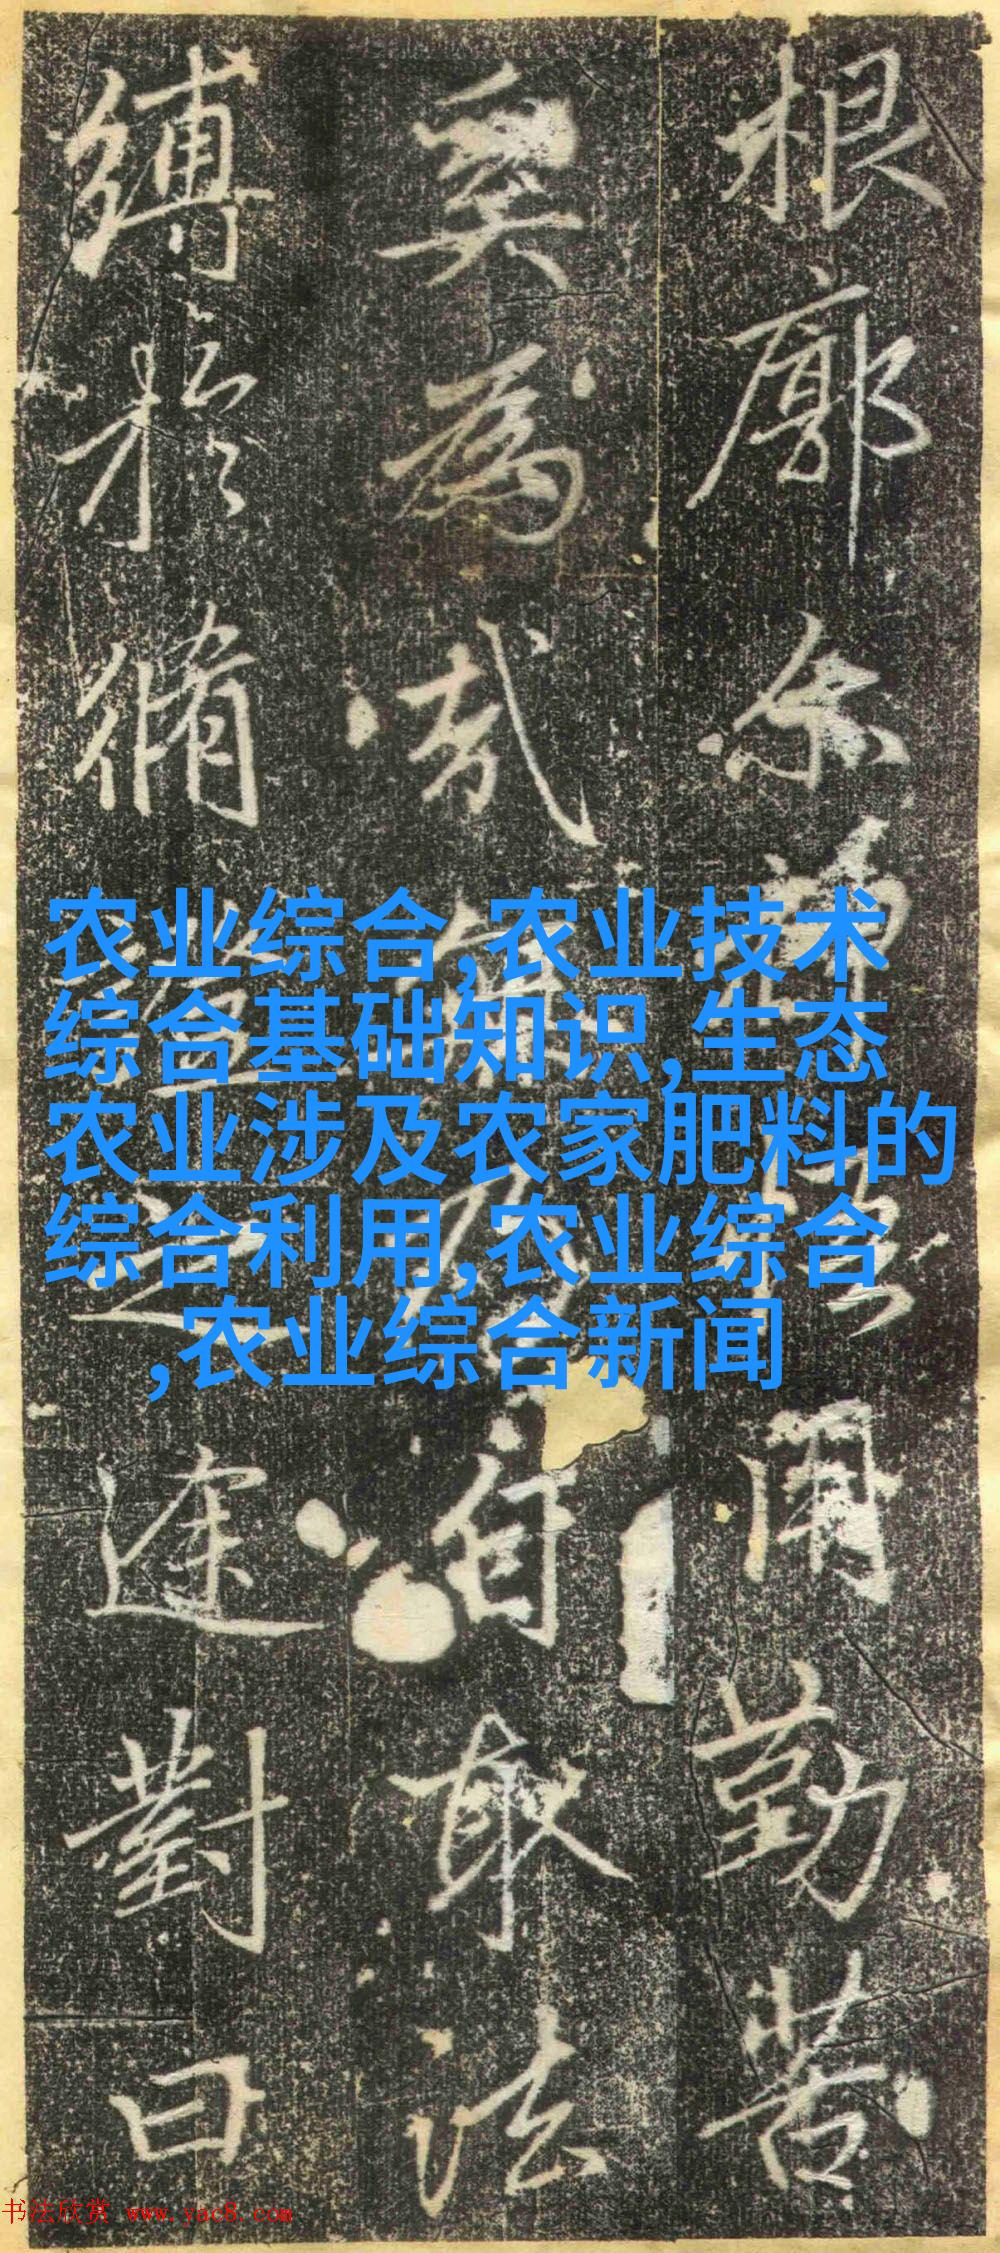 根廓尒用勤苦
奚為哉無乃自取法
縛於脩證之途對曰
农业综合,农业技术
综合基础知识,生态
农业涉及农家肥料的
综合利用,农业综合
,农业综合新闻
书法欣赏 www.yac8.com